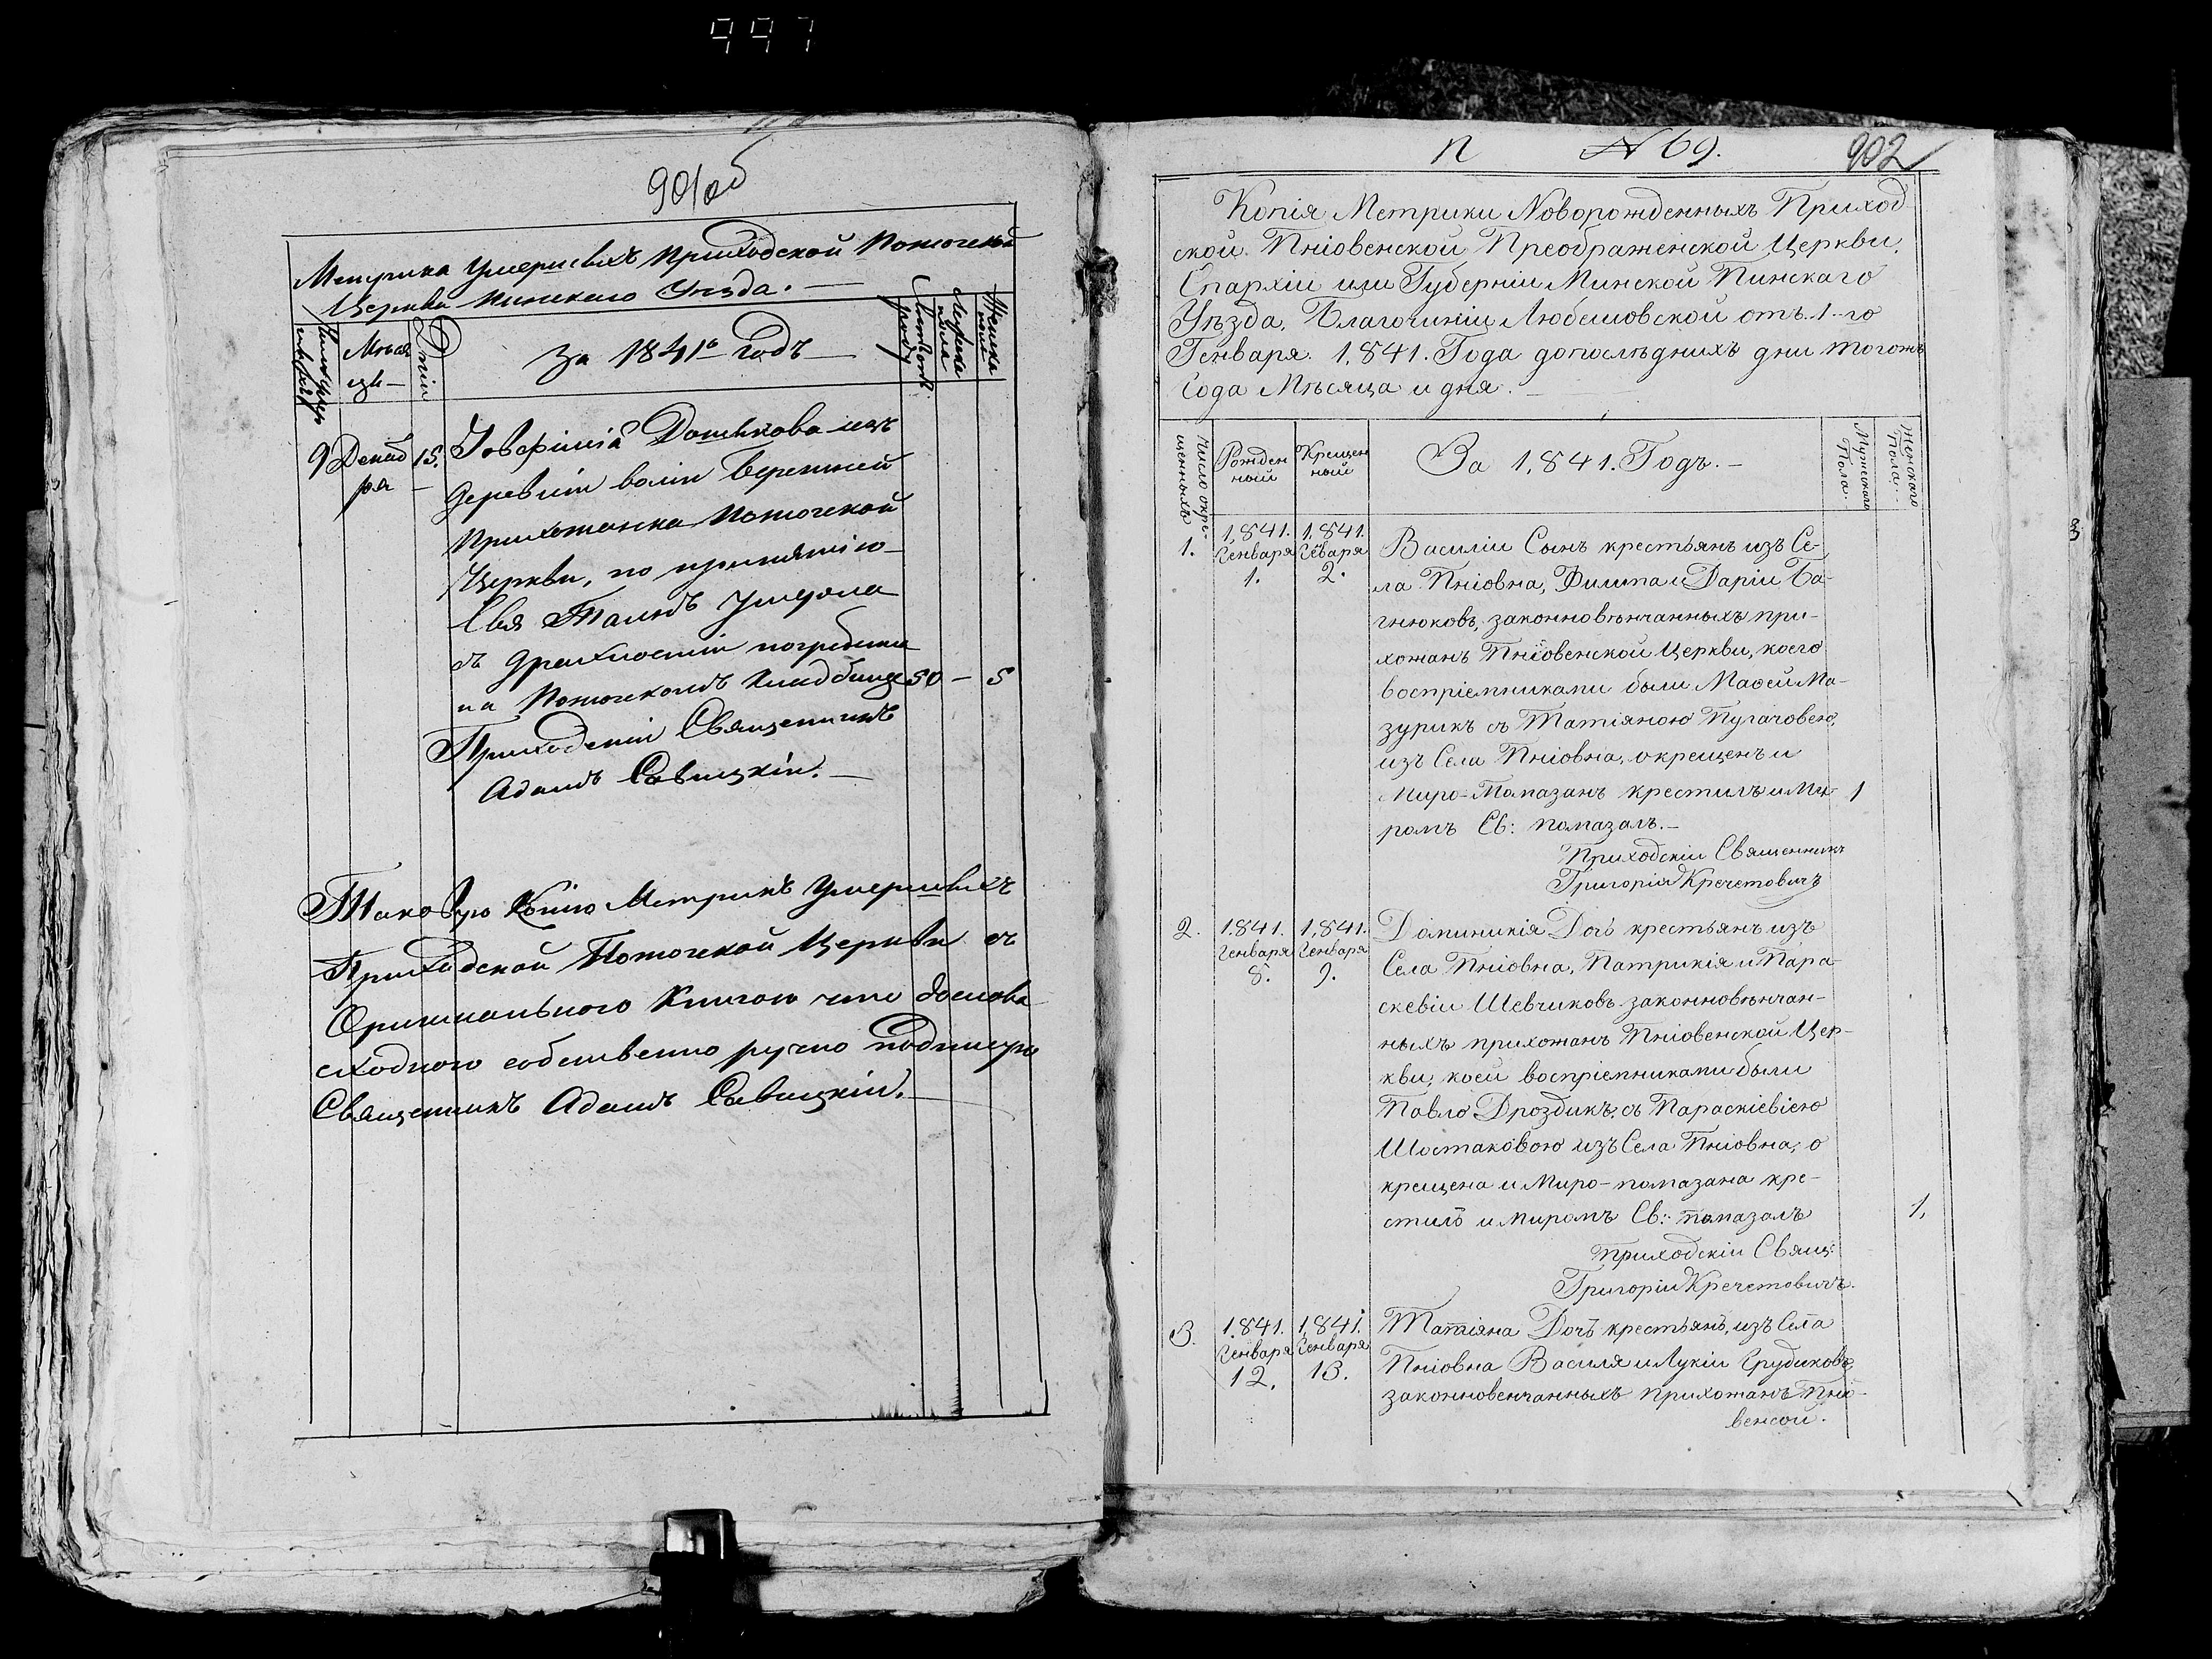 997
901об
Метрика Умершихъ Приходской Поточской
Церкви Пинскаго Уезда. —
Мѣся
ци —
Дніи
За 1841о Годъ —
Женска
9 Декаб
ря —
15.
Дошкова изъ
деревни волн Бережней
Прихожанка Поточской
Церкви, по принятію
Свя Таинъ Умерла
съ Драхлости погребена
на Поточскомъ Кладбище 50 — 5
Приходскіи Священникъ
Адамъ Савицкіи. —
Таковую Копію Метрикъ Умершихъ
Приходской Поточской Церкви съ
Оригинального Книгою что дослова
сходною собственно ручно подписую
Священникъ Адамъ Савицкіи. —
п N 69. 902
Копія Метрики Новорожденныхъ Приход
ской Пніовенской Преображенской Церкви,
Епархіи или Губерніи Минской Пинскаго
Уѣзда, Благочиніи Любешовской отъ 1-го
Генваря. 1,841. Года допослѣднихъ дни тогожъ
Года Мѣсяца и дня. —
Число окре-
щенныхъ
Рожден
ный
Крещен
ный
За 1,841. Годъ. —
Мужескаго
Пола.
Женскаго
Пола.
1.
1,841.
Генваря
1.
1,841.
Геваря
2.
Василіи Сынъ крестьянъ изъ Се-
ла Пніовна, Филипа и Даріи Ба-
гнюковъ, законновѣнчанныхъ при-
хожанъ Пніовенской Церкви, коего
воспріемниками были Маѳеи Ма-
зурикъ съ Татіяною Пугачовею,
изъ Села Пніовна, окрещенъ и
Миро-Помазанъ крестилъ и Ми- 1
ромъ Св: помазалъ. —
Приходскіи Священникъ
Григорія Кречетовичъ
2.
1841.
Генваря
8.
1,841.
Генваря
9.
Доминикія Дочь крестьянъ изъ
Села Пніовна, Патрикія и Пара-
скевіи Шевчиковъ законновѣнчан-
ныхъ прихожанъ Пніовенской Цер-
кви, коеи воспріемниками были
Павло Дроздикъ съ Параскіевіею
Шостаковою изъ Села Пніовна, о
крещена и Миро-помазана кре-
стилъ и миромъ Св: помазалъ 1,
Приходскіи Свящ:
Григоріи Кречетовичъ.
3.
1.841.
Генваря
12.
1,841.
Генваря
13.
Татіяна Дочъ крестьянъ, изъ Села
Пніовна Василя и Лукіи Грудиковъ,
законновенчанныхъ прихожанъ Пніо-
венсои.